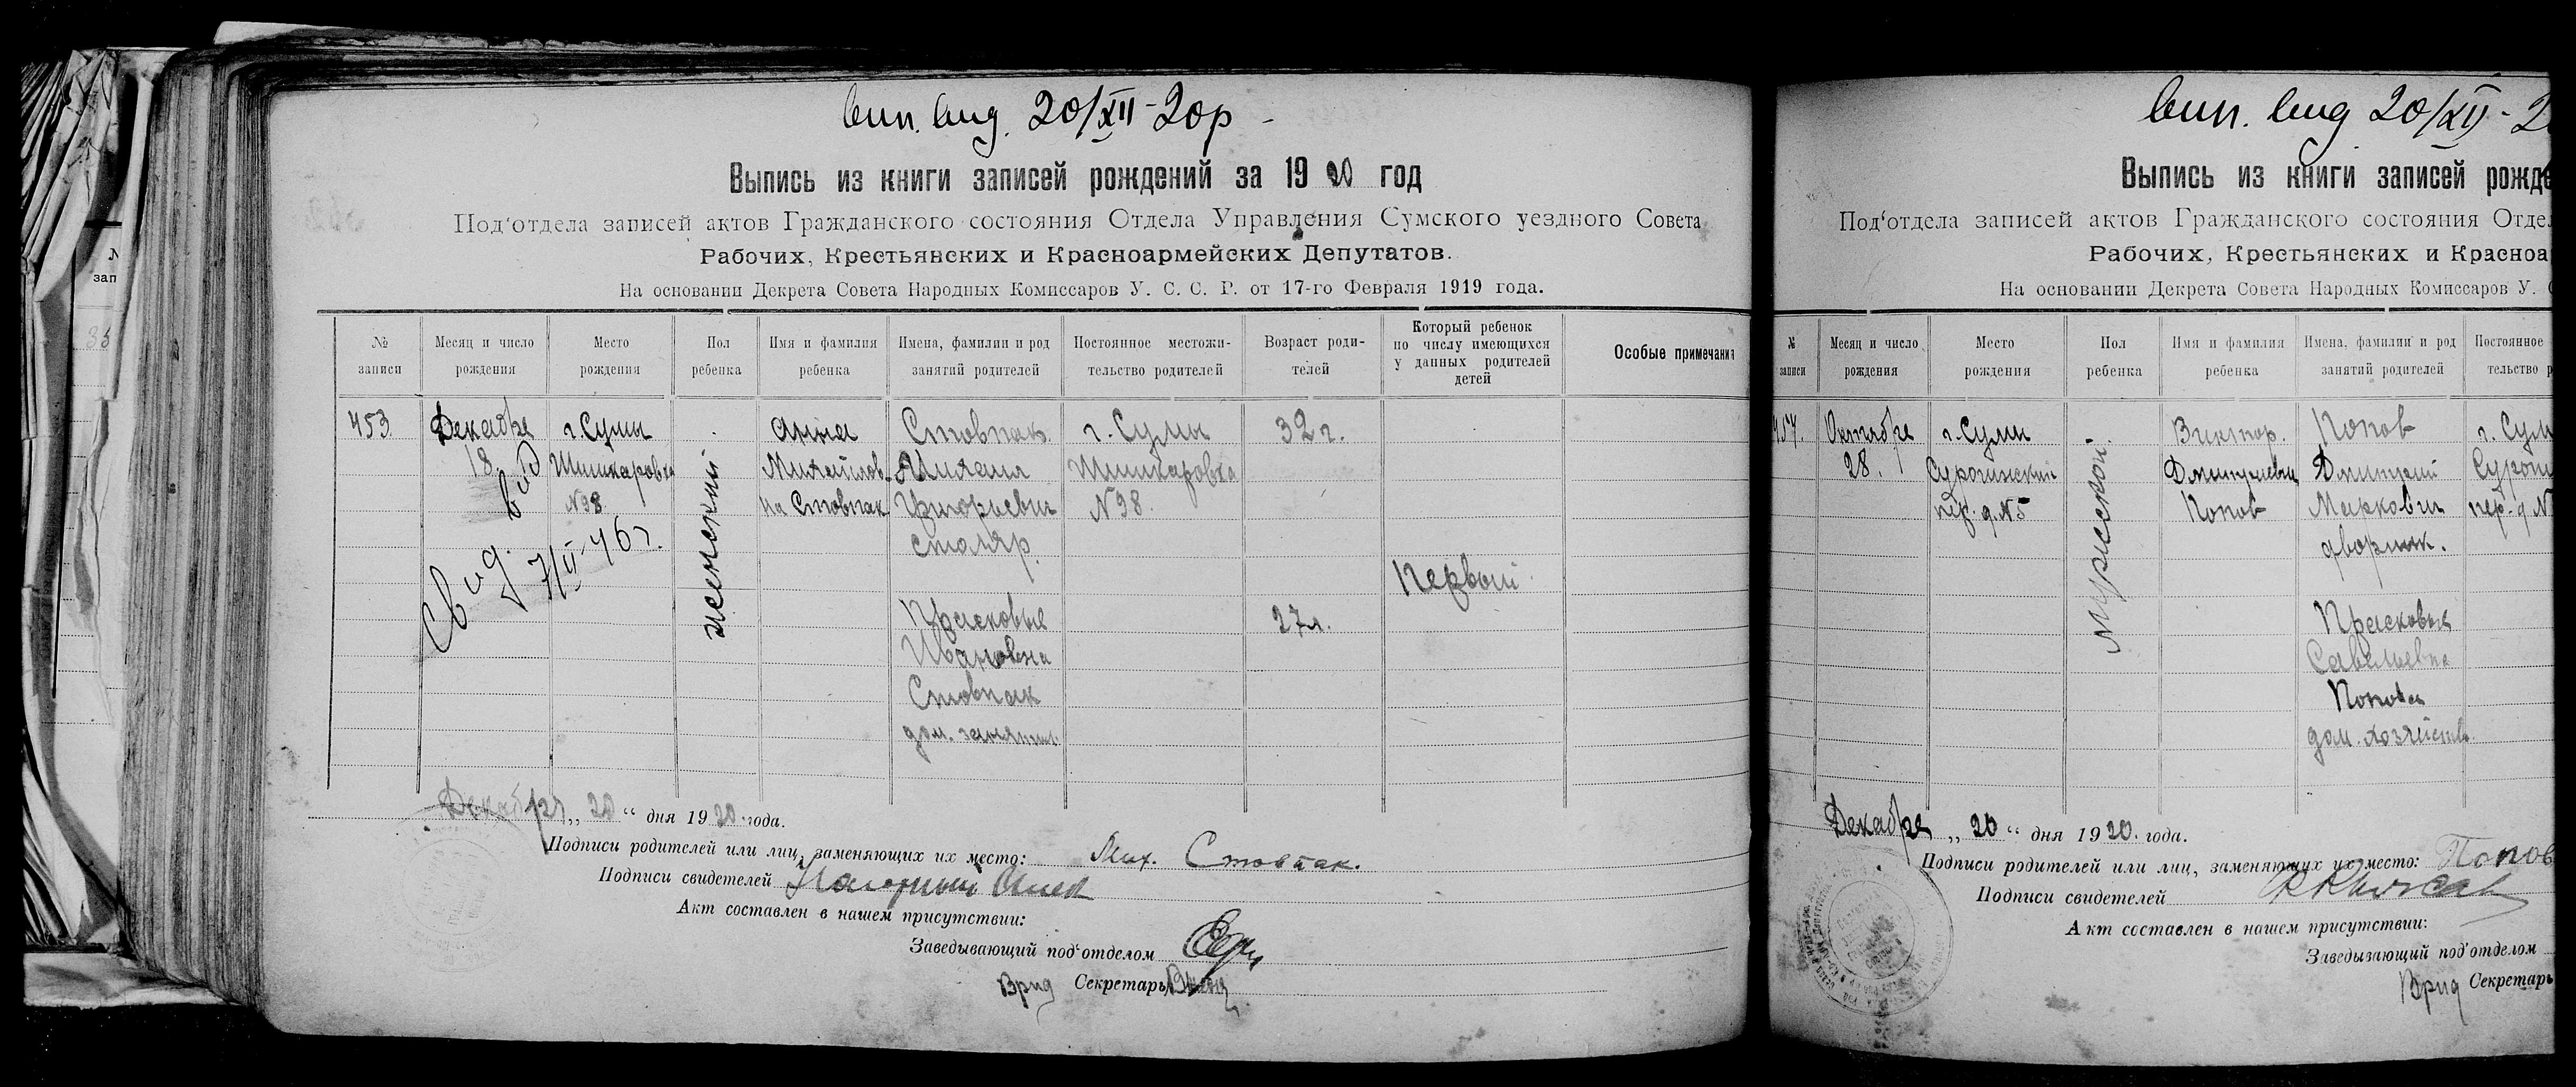 вип. вид. 20/XII - 20р
Выпись из книги записей рождений за 1920 год
Под'отдела записей актов Гражданского состояния Отдела Управления Сумского уездного Совета
Рабочих, Крестьянских и Красноармейских Депутатов.
На основании Декрета Совета Народных Комиссаров У. С. С. Р. от 17-го Февраля 1919 года.
№ записи
Месяц и число рождения
Место рождения
Пол ребенка
Имя и фамилия ребенка
Имена, фамилии и род занятий родителей
Постоянное местожительство родителей
Возраст родителей
Который ребенок по числу имеющихся у данных родителей детей
Особые примечания
453
Декабря
18
г. Сумы
Шишкаровка
№98.
женский
Анна
Михайлов-
на Стовпак
Стовпак
Михаил
Григорьевич
столяр.
Прасковья
Ивановна
Стовпак
дом.
г. Сумы
Шишкаровка
№98.
32 г.
27 л.
Первый
Свид. 7/II-46 г.
Декабря „20“ дня 1920 года.
Подписи родителей или лиц, заменяющих их место: Мих. Стовпак.
Подписи свидетелей
Акт составлен в нашем присутствии:
Заведывающий под'отделом
Врид Секретарь
вип. вид 20/XII - 2
Выпись из книги записей рожде
Под'отдела записей актов Гражданского состояния Отде
Рабочих, Крестьянских и Красноа
На основании Декрета Совета Народных Комиссаров У. С
№ записи
Месяц и число рождения
Место рождения
Пол ребенка
Имя и фамилия ребенка
Имена, фамилии и род занятий родителей
Постоянное
тельство р
Октября
28.
г. Сумы
пер. д. №5
Мужской
Виктор.
Дмитриевич
Попов
Попов
Дмитрий
Маркович
дворник.
Прасковья
Савельевна
Попова
дом. хозяйство
г. Сум
пер. д №
Декабря „20“ дня 1920. года.
Подписи родителей или лиц, заменяющих их место: Попов
Подписи свидетелей
Акт составлен в нашем присутствии:
Заведывающий под'отделом
Врид Секретарь
зап